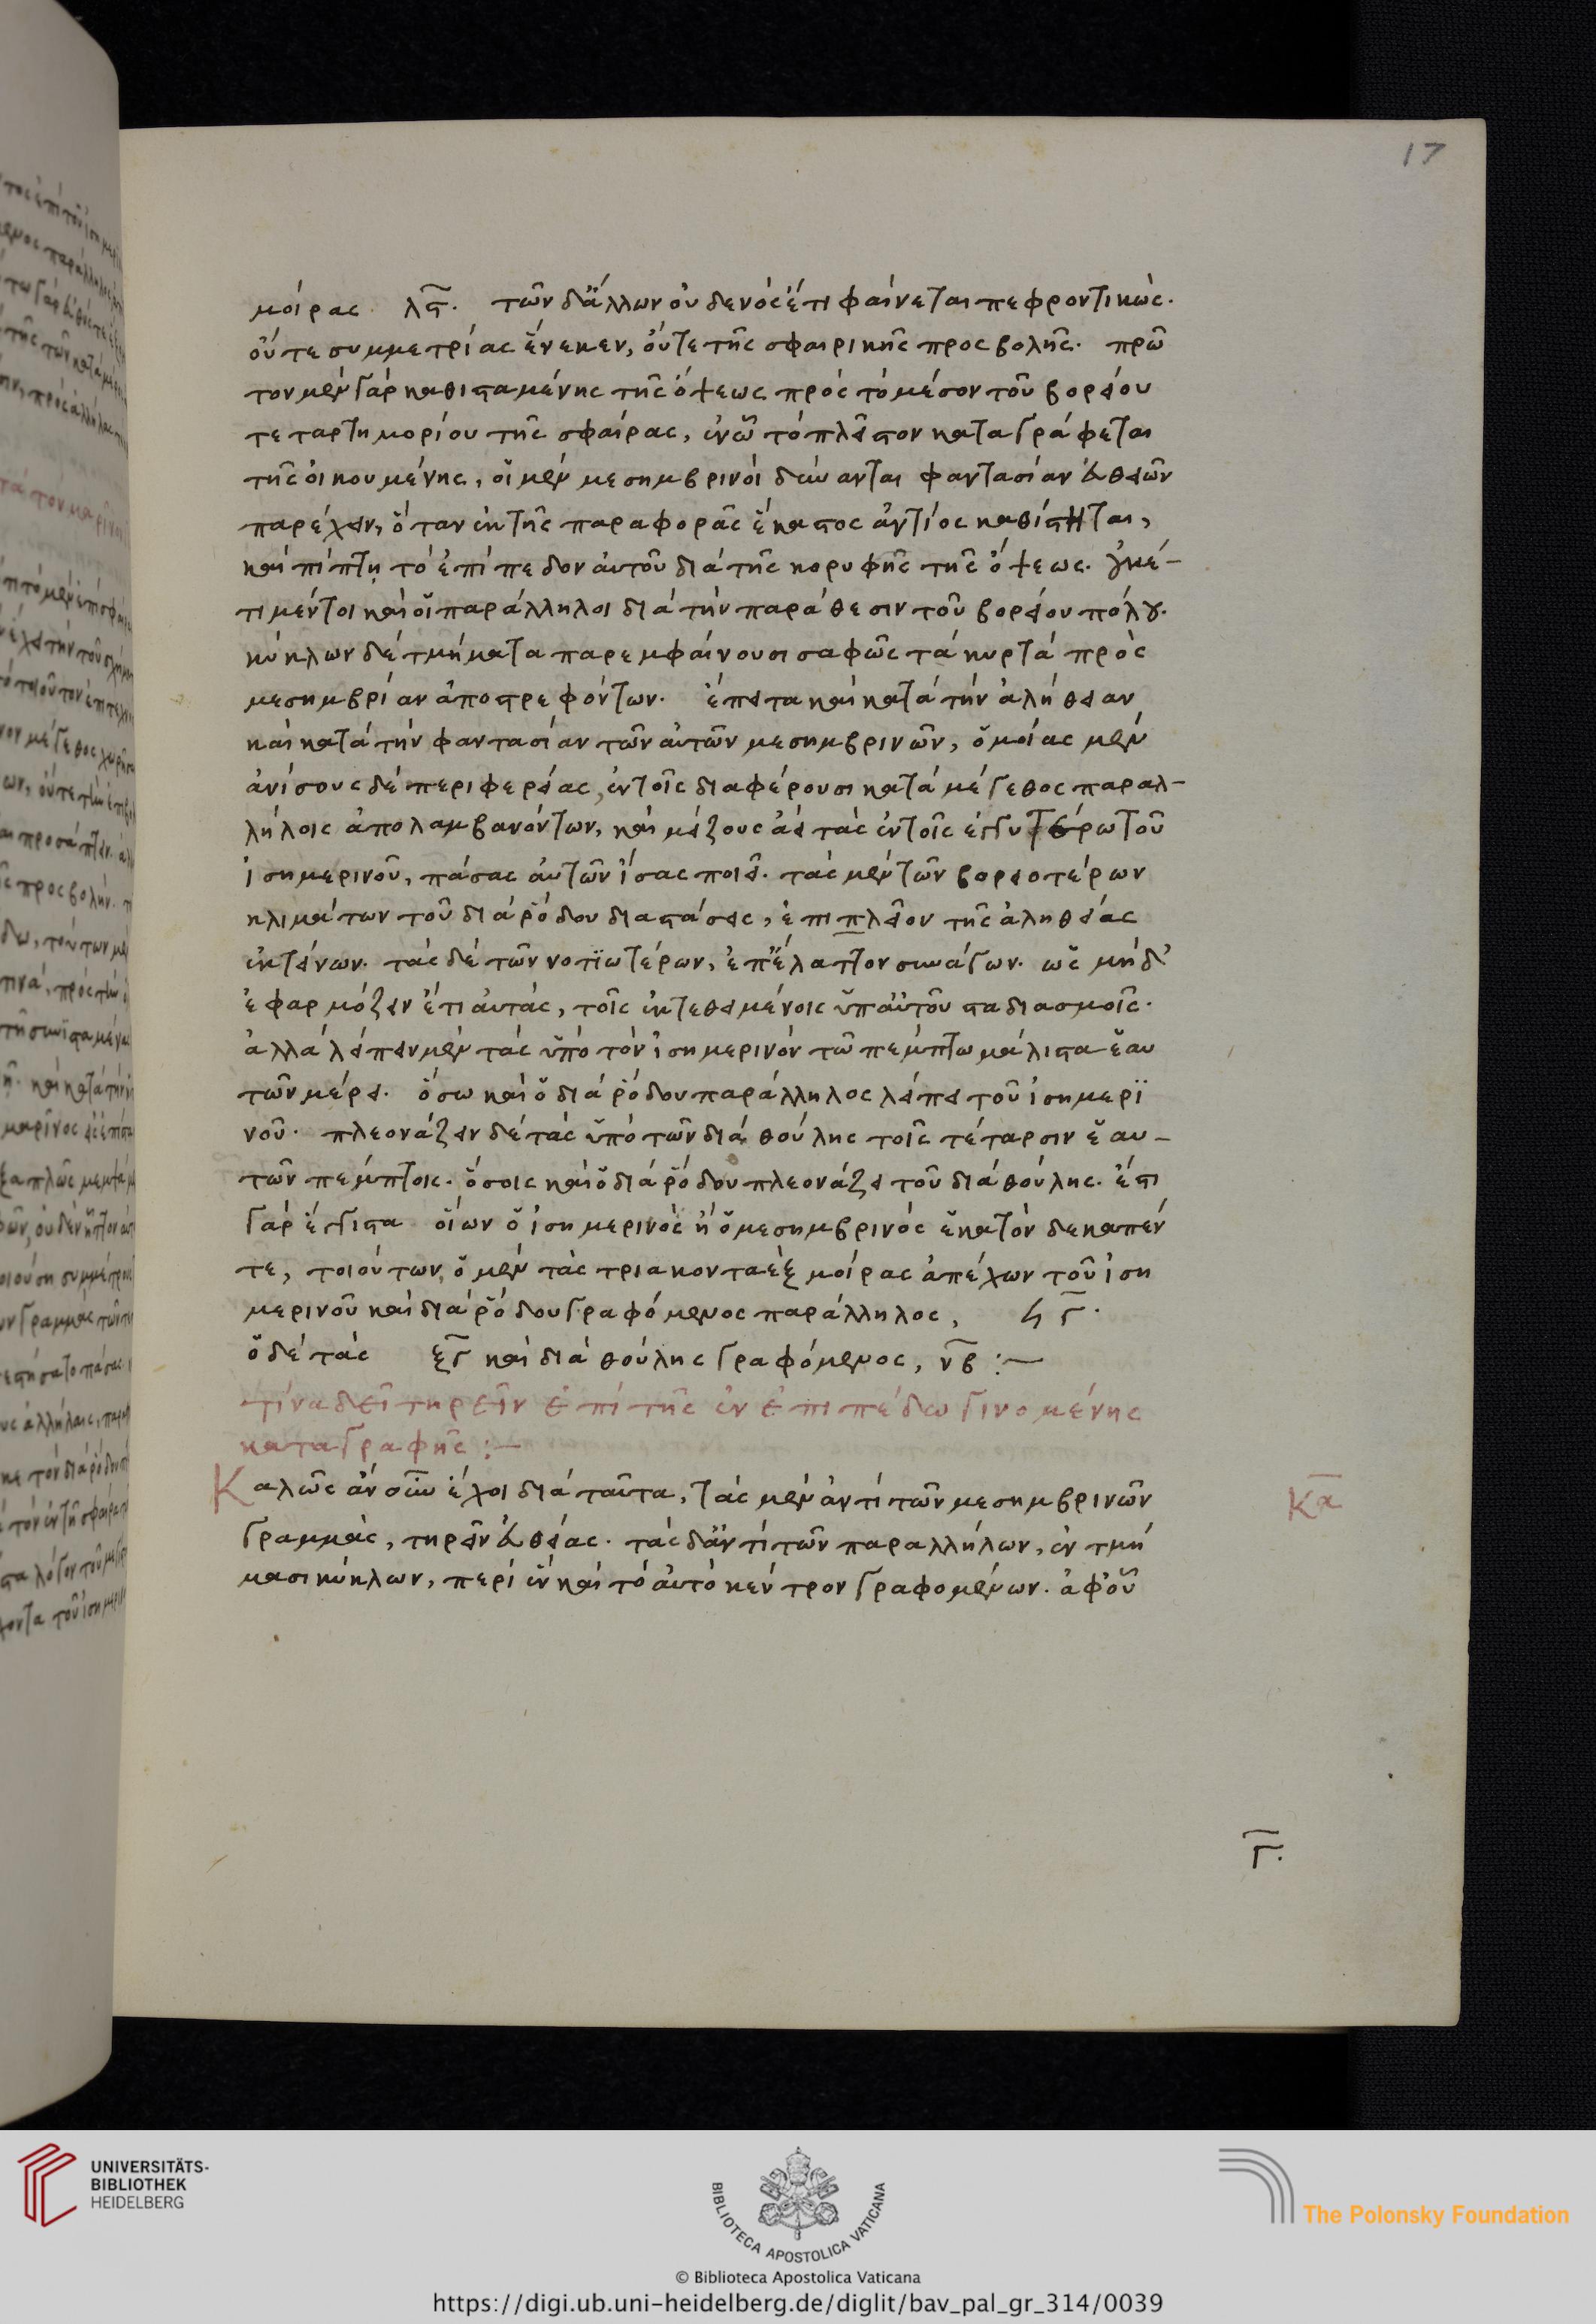 17
μοίρας λϛ. τῶν δἄλλων οὐδενὸς ἔτι φαίνεται πεφροντικὼς.
οὔτε συμμετρίας ἕνεκεν, οὔτε τῆς σφαιρικῆς προσβολῆς. πρῶ
τον μὲν γὰρ καθισταμένης τῆς ὄψεως πρὸς τὸ μέσον τοῦ βορείου
τεταρτημορίου τῆς σφαίρας, ἐν ᾧ τὸ πλεῖστον καταγράφεται
τῆς οἰκουμένης, οἱ μὲν μεσημβρινοὶ δύνανται φαντασίαν εὐθειῶν
παρέχειν, ὅταν ἐκ τῆς παραφορᾶς ἕκαστος ἀντίος καθίστηται,
καὶ πίπτῃ τὸ ἐπίπεδον αὐτοῦ διὰ τῆς κορυφῆς τῆς ὄψεως. οὐκέ-
τι μέντοι καὶ οἱ παράλληλοι διὰ τὴν παράθεσιν τοῦ βορείου πόλου.
κύκλων δὲ τμήματα παρεμφαίνουσι σαφῶς τὰ κυρτὰ πρὸς
μεσημβρίαν ἀποστρεφόντων. ἔπειτα καὶ κατὰ τὴν ἀλήθειαν
καὶ κατὰ τὴν φαντασίαν τῶν αὐτῶν μεσημβρινῶν, ὁμοίας μὲν
ἀνίσους δὲ περιφερείας, ἐν τοῖς διαφέρουσι κατὰ μέγεθος παραλ-
λήλοις ἀπολαμβανόντων, καὶ μείζους ἀεὶ τὰς ἐν τοῖς ἐγγυτέρω τοῦ
ἰσημερινοῦ, πάσας αὐτῶν ἴσας ποιεῖ. τὰς μὲν τῶν βορειοτέρων
κλιμάτων τοῦ διὰ ῥόδου διαστάσεις, ἐπιπλεῖον τῆς ἀληθείας
ἐκτείνων. τὰς δὲ τῶν νοτϊωτέρων, ἐπ' ἔλαττον συνάγων. ὡς μήδ'
ἐφαρμόζειν ἔτι αὐτὰς, τοῖς ἐκτεθειμένοις ὑπ' αὐτοῦ σταδιασμοῖς.
ἀλλὰ λείπειν μὲν τὰς ὑπὸ τὸν ἰσημερινὸν τῷ πέμπτω μάλιστα ἑαυ
τῶν μέρει. ὅσω καὶ ὁ διὰ ῥόδου παράλληλος λείπει τοῦ ἰσημερϊ
νοῦ. πλεονάζειν δὲ τὰς ὑπὸ τῶν διὰ θούλης τοῖς τέταρσιν ἑαυ-
τῶν πέμπτοις. ὅσοις καὶ ὁ διὰ ῥόδου πλεονάζει τοῦ διὰ θούλης. ἔστι
γὰρ ἔγγιστα οἵων ὁ ἰσημερινὸς ἢ ὁ μεσημβρινὸς ἑκατὸν δεκαπέν
τε, τοιούτων, ὁ μὲν τὰς τριακονταὲξ μοίρας ἀπέχων τοῦ ἰση
μερινοῦ καὶ διὰ ῥόδου γραφόμενος παράλληλος, ϟγ.
ὁ δὲ τὰς ξγ καὶ διὰ θούλης γραφόμενος, νβ :—
τίνα δεῖ τηρεῖν ἐπὶ τῆς ἐν ἐπιπέδω γινομένης
καταγραφῆς :—
Καλῶς ἂν οὖν ἔχοι διὰ ταῦτα, τὰς μὲν ἀντὶ τῶν μεσημβρινῶν
κα
γραμμὰς, τηρεῖν εὐθείας. τὰς δἀντὶ τῶν παραλλήλων, ἐν τμή
μασι κύκλων, περὶ ἓν καὶ τὸ αὐτὸ κέντρον γραφομένων. ἀφ' οὗ
γ.
UNIVERSITÄTS-
BIBLIOTHEK
HEIDELBERG
BIBLIOTECA APOSTOLICA VATICANA
The Polonsky Foundation
© Biblioteca Apostolica Vaticana
https://digi.ub.uni-heidelberg.de/diglit/bav_pal_gr_314/0039